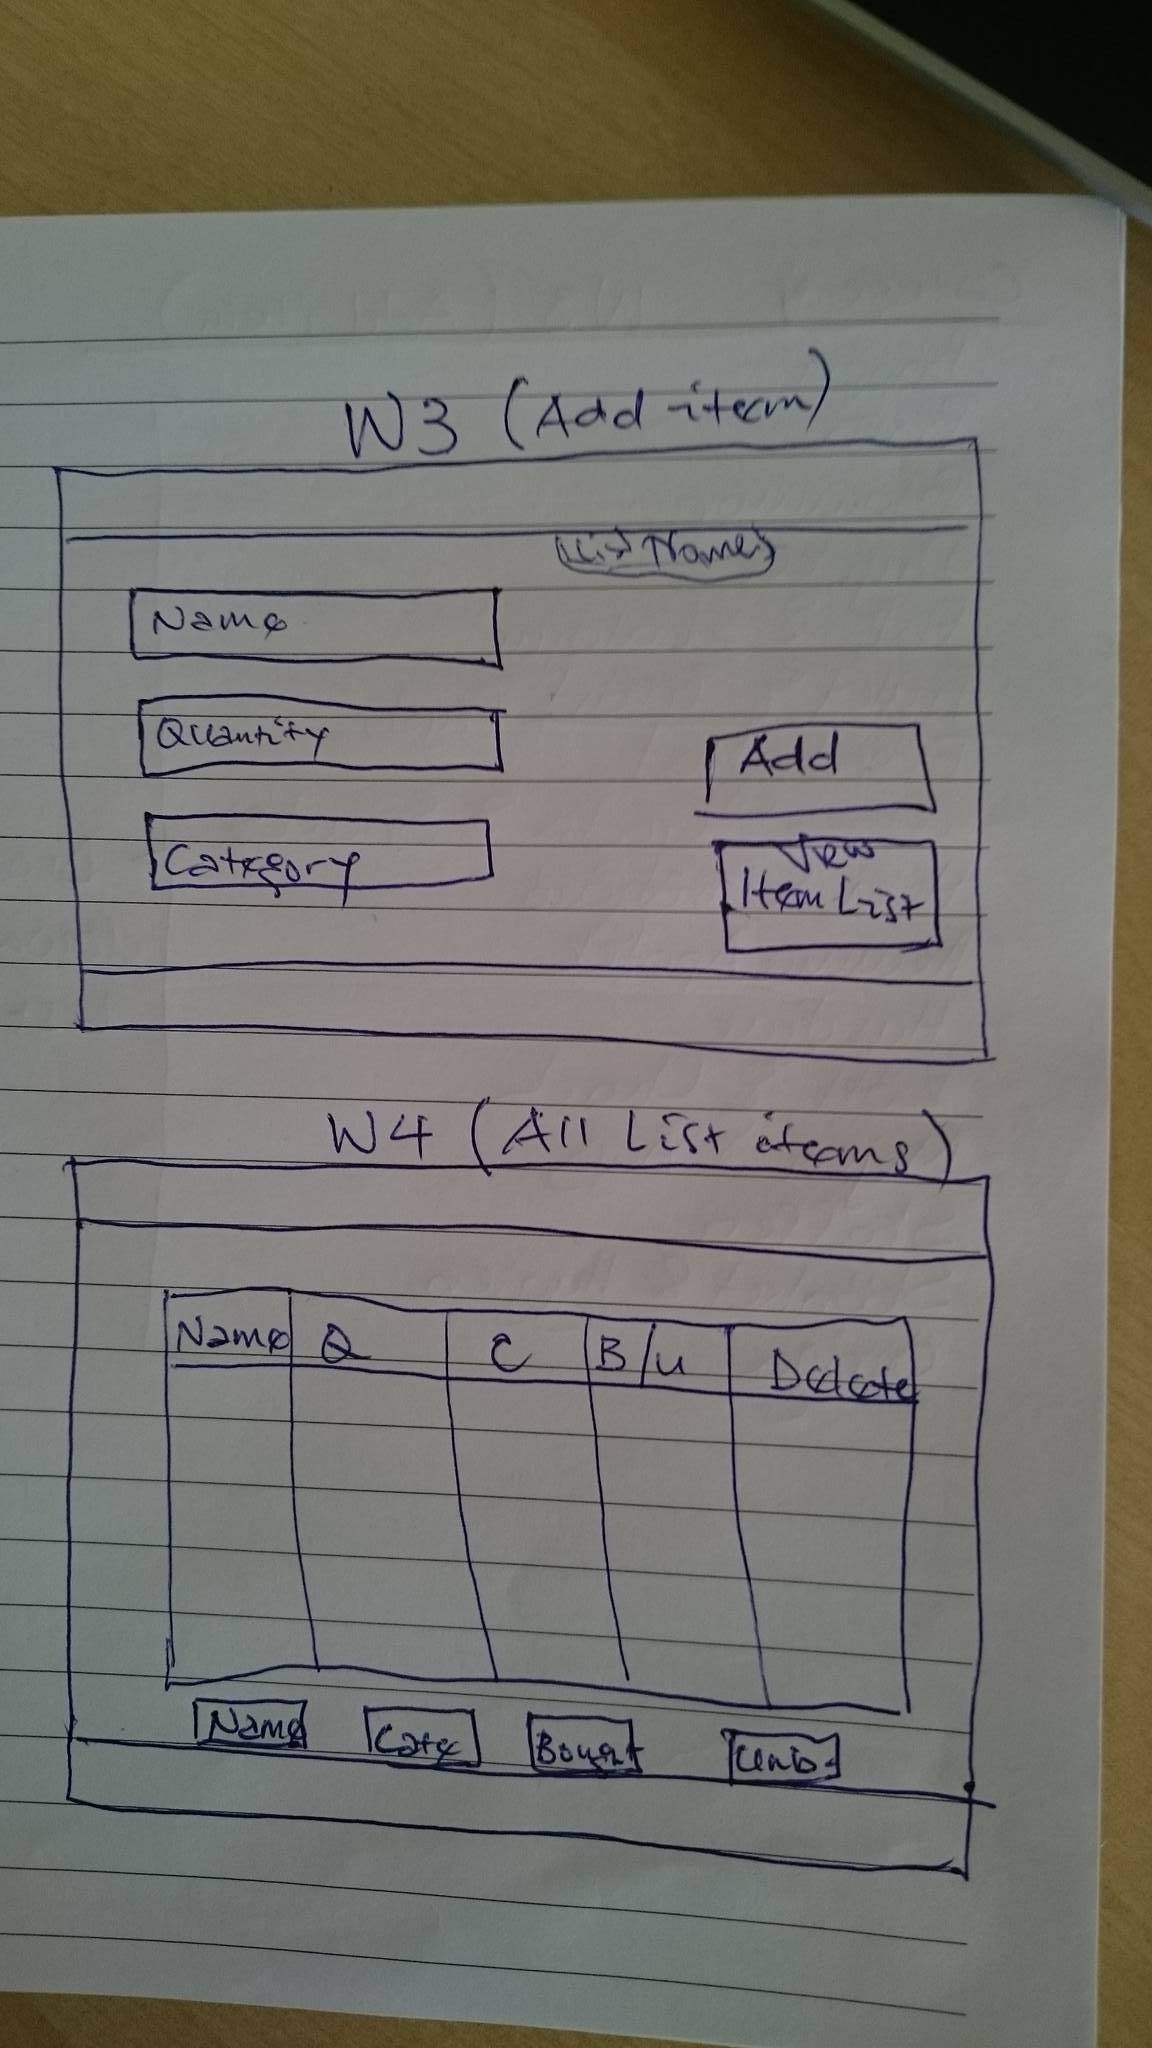 W3 (Add item)
(List Name)
Name
Quantity
Add
Category
View
Item List
W4 (All List items)
Name Q C B/U Delete
Name Cate Bought Unb.